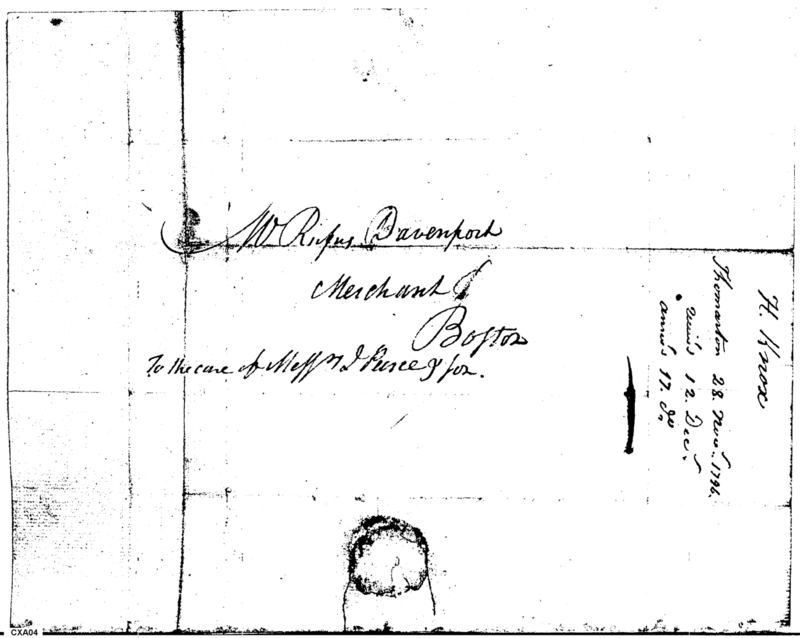 Mr Rufus Davenport
Merchant
Boston
To the care of Messrs J Peirce & son.
H. Knox
Thomaston 28. Novr. 1796.
12. Decr.
17. Do
CXA04